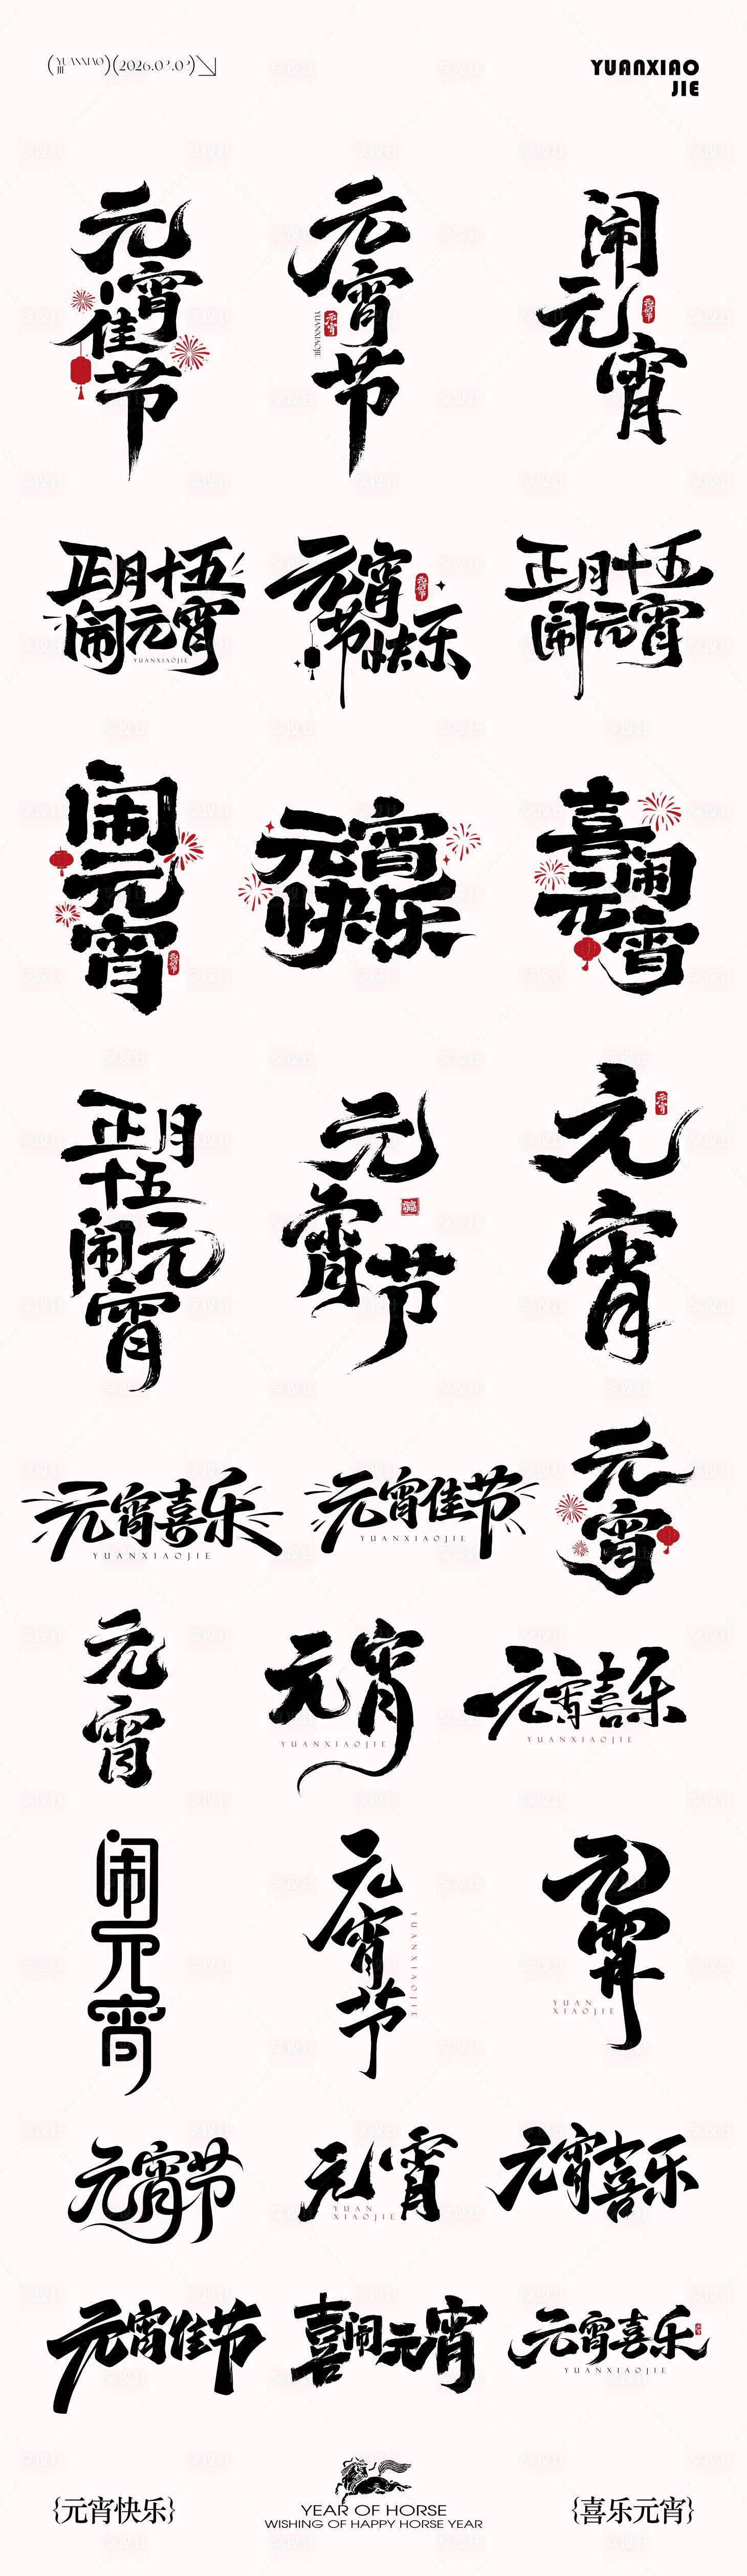 (YUANXIAO JIE)(2026.03.03)
YUANXIAO
JIE
元宵佳节
元宵节
YUANXIAOJIE
元宵
闹元宵
元宵节
正月十五
闹元宵
YUANXIAOJIE
元宵
节快乐
元宵节
正月十五
闹元宵
闹元宵
元宵节
元宵
快乐
喜闹
元宵
正月
十五
闹元
宵
元宵节
元宵
元宵
元宵喜乐
YUANXIAOJIE
元宵佳节
YUANXIAOJIE
元宵
元宵
元宵
YUANXIAOJIE
元宵喜乐
YUANXIAOJIE
闹元宵
元宵节
YUANXIAOJIE
元宵
YUAN
XIAOJIE
元宵节
元宵
YUAN
XIAOJIE
元宵喜乐
元宵佳节
喜闹元宵
元宵喜乐
YUANXIAOJIE
{元宵快乐}
YEAR OF HORSE
WISHING OF HAPPY HORSE YEAR
{喜乐元宵}